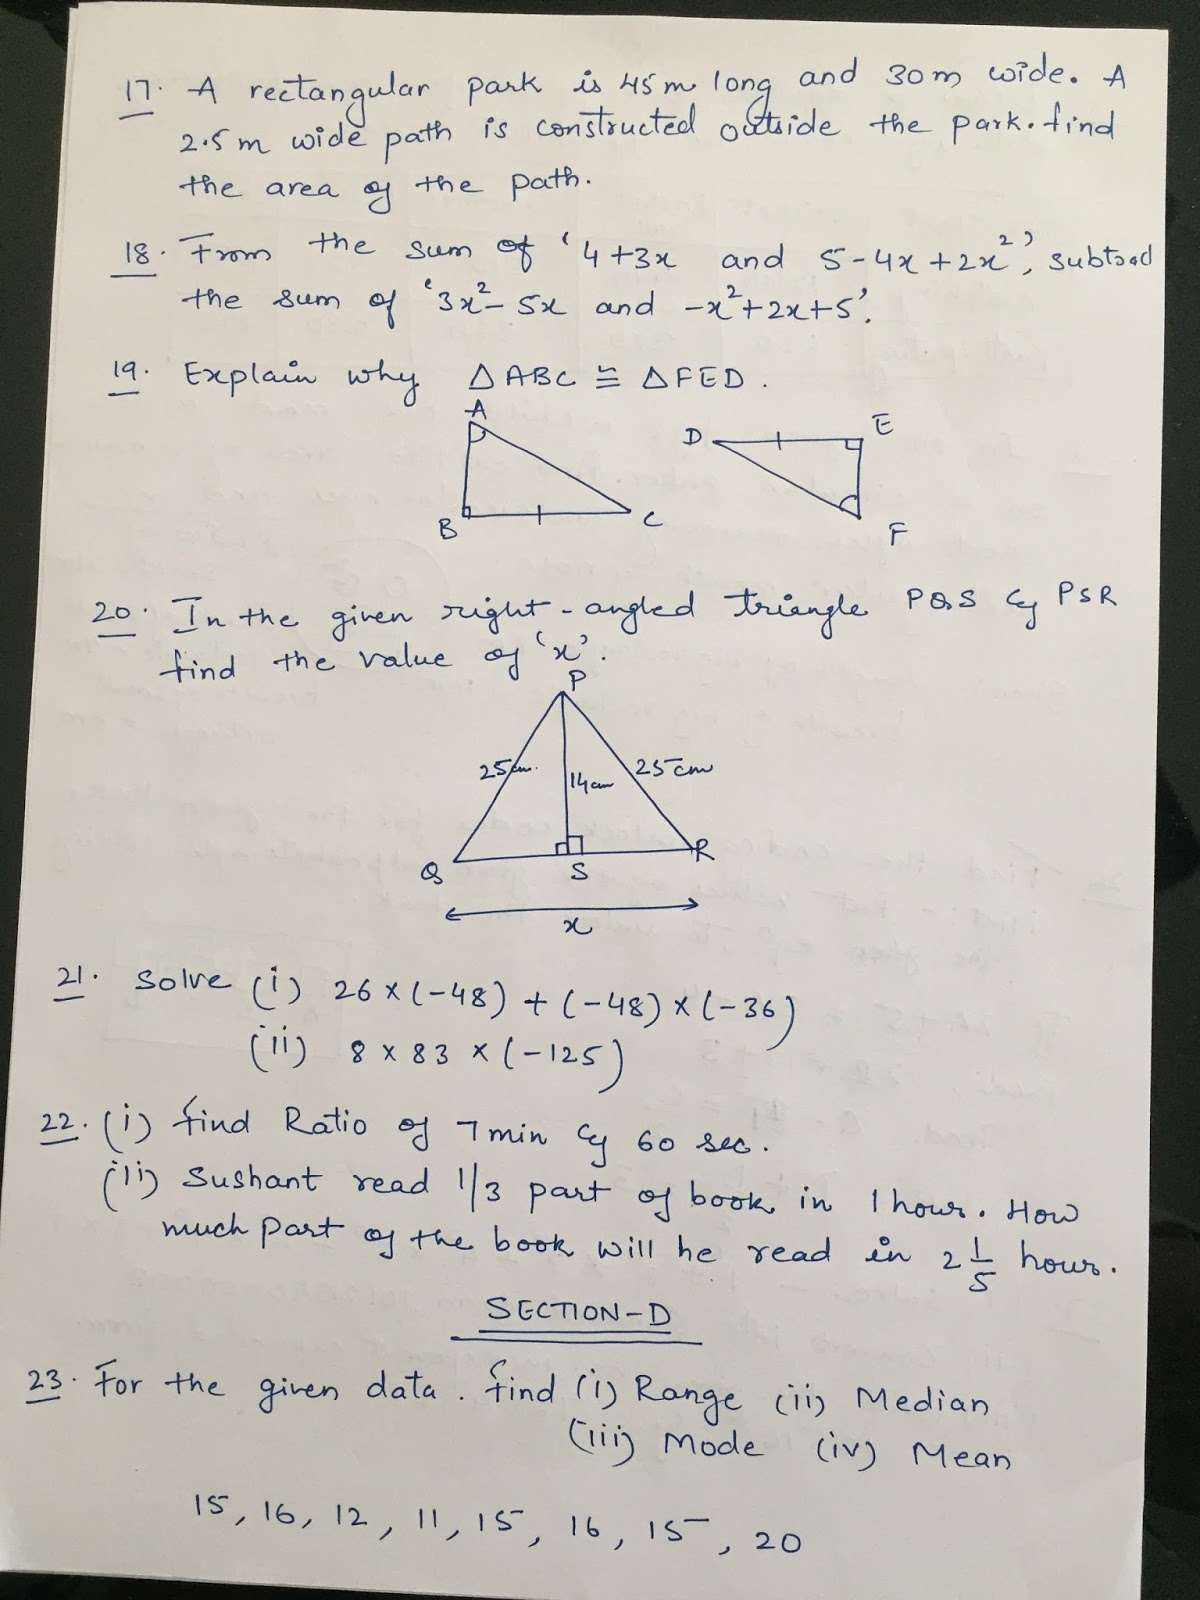 17. A rectangular park is 45m long and 30m wide. A
2.5m wide path is constructed outside the park. find
the area of the path.
18. From the sum of '4+3x and 5-4x+2x²', subtract
the sum of '3x²-5x and -x²+2x+5'.
19. Explain why △ABC ≅ △FED.
A
B
C
D
E
F
20. In the given right-angled triangle PQS & PSR
find the value of 'x'.
P
25cm
14cm
25cm
Q
S
R
x
21. Solve (i) 26×(-48)+(-48)×(-36)
(ii) 8×83×(-125)
22. (i) find Ratio of 7min & 60 sec.
(ii) Sushant read 1/3 part of book in 1 hour. How
much part of the book will he read in 2 1/5 hour.
SECTION-D
23. For the given data. find (i) Range (ii) Median
(iii) Mode (iv) Mean
15, 16, 12, 11, 15, 16, 15, 20